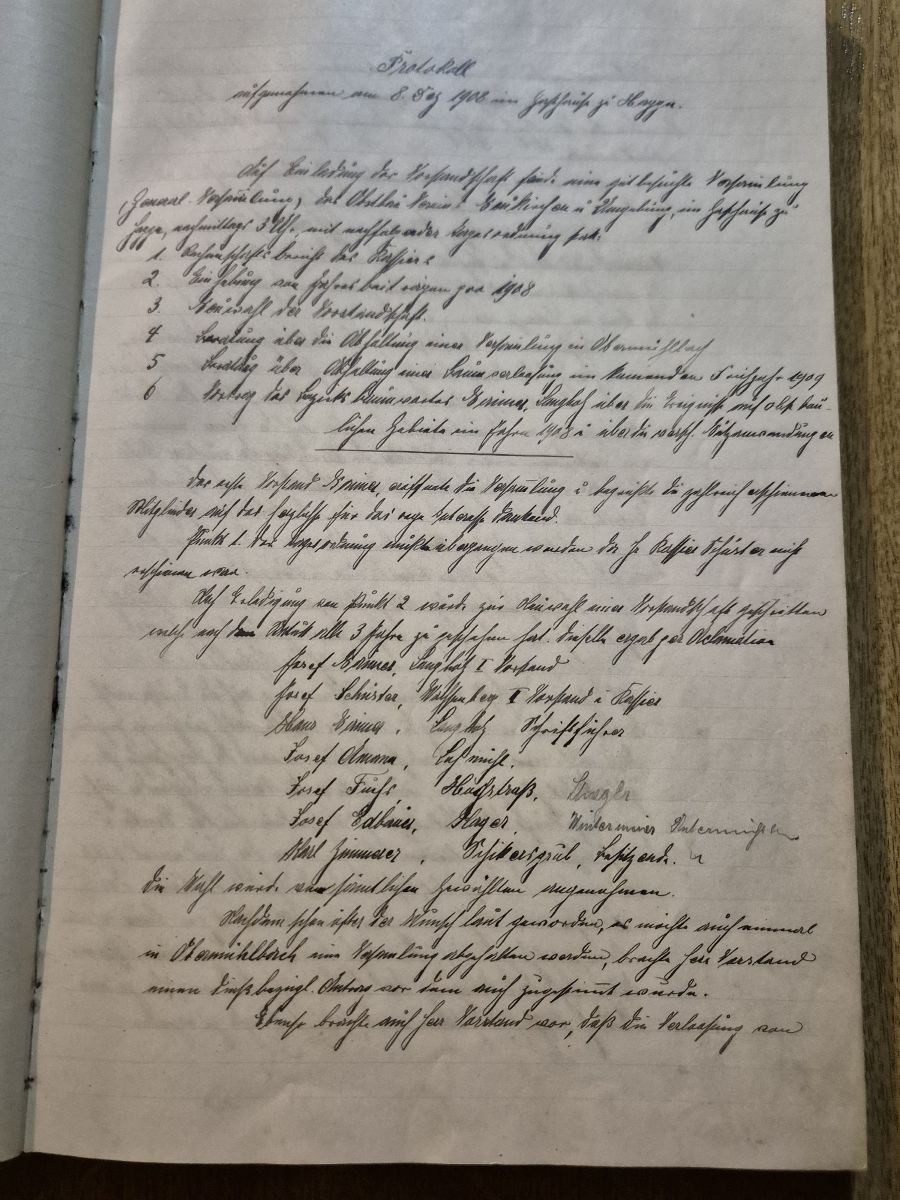 Protokoll
aufgenommen am 8. Dez 1908 im Gasthause zu Haggn.
Auf Einladung der Vorstandschaft fand eine gutbesuchte Versammlung
(General-Versammlung) des Obstbau Vereins Neukirchen u Umgebung, im Gasthause zu
Haggn, nachmittags 3 Uhr, mit nachfolgender Tagesordnung statt:
1. Rechenschaftsbericht des Kassiers
2. Einhebung von Jahresbeiträgen pro 1908
3 Neuwahl der Vorstandschaft.
4 Beratung über die Abhaltung einer Versammlung in Obermühlbach
5 Beratung über Abhaltung einer Baumverlosung im kommenden Frühjahr 1909
6 Vortrag des Bezirks Baumwartes über die Ereignisse auf obstbau-
lichen Gebiete im Jahre 1908 u über die versch. Nutzanwendungen
Der erste Vorstand eröffnete die Versammlung u begrüßte die zahlreich erschienenen
Mitglieder auf das herzlichste für das rege Interesse dankend.
Punkt 1 der Tagesordnung mußte übergangen werden da H. Kassier Schuster nicht
erschienen war.
Nach Erledigung von Punkt 2 wurde zur Neuwahl einer Vorstandschaft geschritten
welch nach dem Statut alle 3 Jahre zu geschehen hat. Dieselbe ergab per Aclamation
Josef I Vorstand
Josef Schuster, II Vorstand u Kassier
Hans Schriftführer
Josef Amann,
Josef Fuchs, Hochstraß,
Josef Edbauer, Hager,
Karl Zimmerer, Schickersgrub, Beisitzende.
Die Wahl wurde von sämtlichen Gewählten angenommen.
Nachdem schon öfter der Wunsch laut geworden, es möchte auch einmal
in Obermühlbach eine Versammlung abgehalten werden, brachte Herr Vorstand
einen diesbezügl. Antrag vor dem auch zugestimmt wurde.
Ebenso brachte auch Herr Vorstand vor, daß die Verlosung von